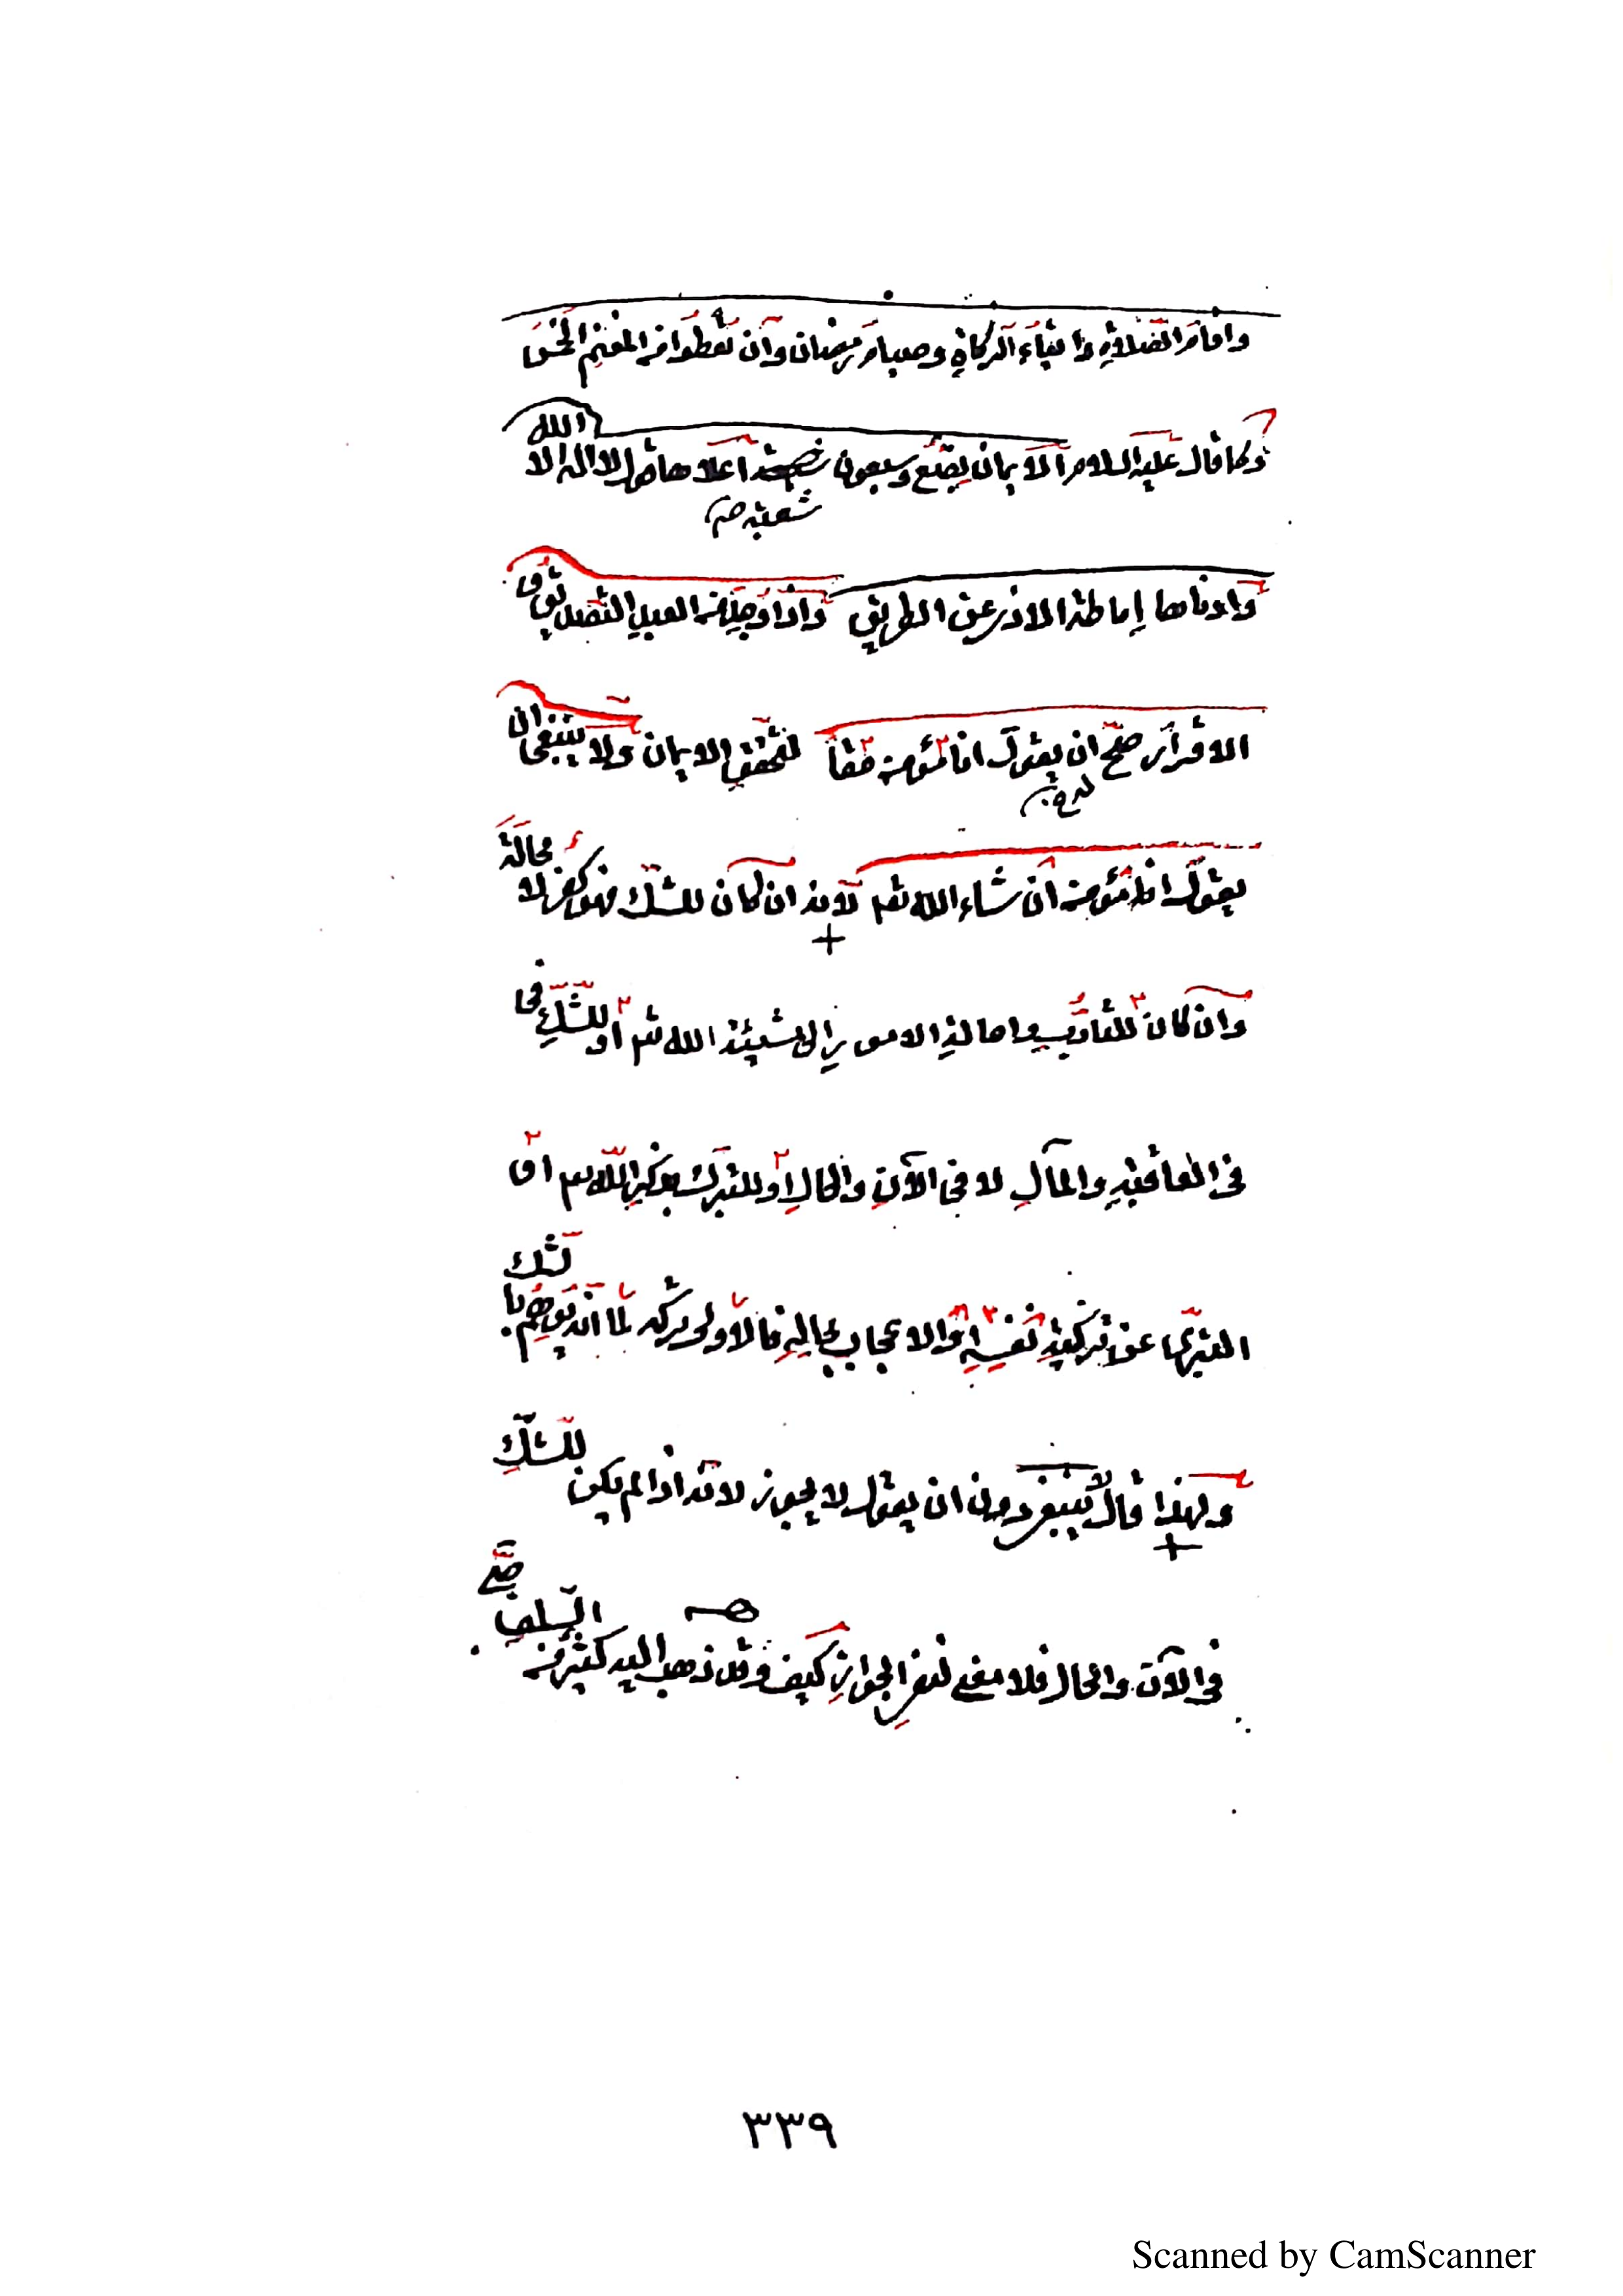 واقام الصلاة وايتاء الزكاة وصيام رمضان وان تعطوا من المغنم الخمس
وكما قال عليه السلام الايمان بضع وسبعون شعبة اعلاها قول لا اله الا الله
شعبة صح
وادناها إماطة الاذى عن الطريق واذا وجد من العبد التصديق و
الاقرار صح ان يقول انا مؤمن حقا لتحقق الايمان ولا ينبغي ان
يقول انا مؤمن ان شاء الله تع لانه ان كان للشك فهو كفر لا محالة
وان كان للتأدب واحالة الامور إلى مشيئة الله تع او للشك في
في العاقبة والمآل لا في الآن والحال او للتبرك بذكر الله تع او
التبري عن تزكية نفسه والاعجاب بحاله فالاولى تركه لما انه يوهم بالشك
ولهذا قال لا ينبغي دون ان يقول لا يجوز لانه اذا لم يكن للشك
صح
في الآن والحال فلا معنى لنفي الجواز كيف وقد ذهب اليه كثير من السلف
٣٣٩
Scanned by CamScanner